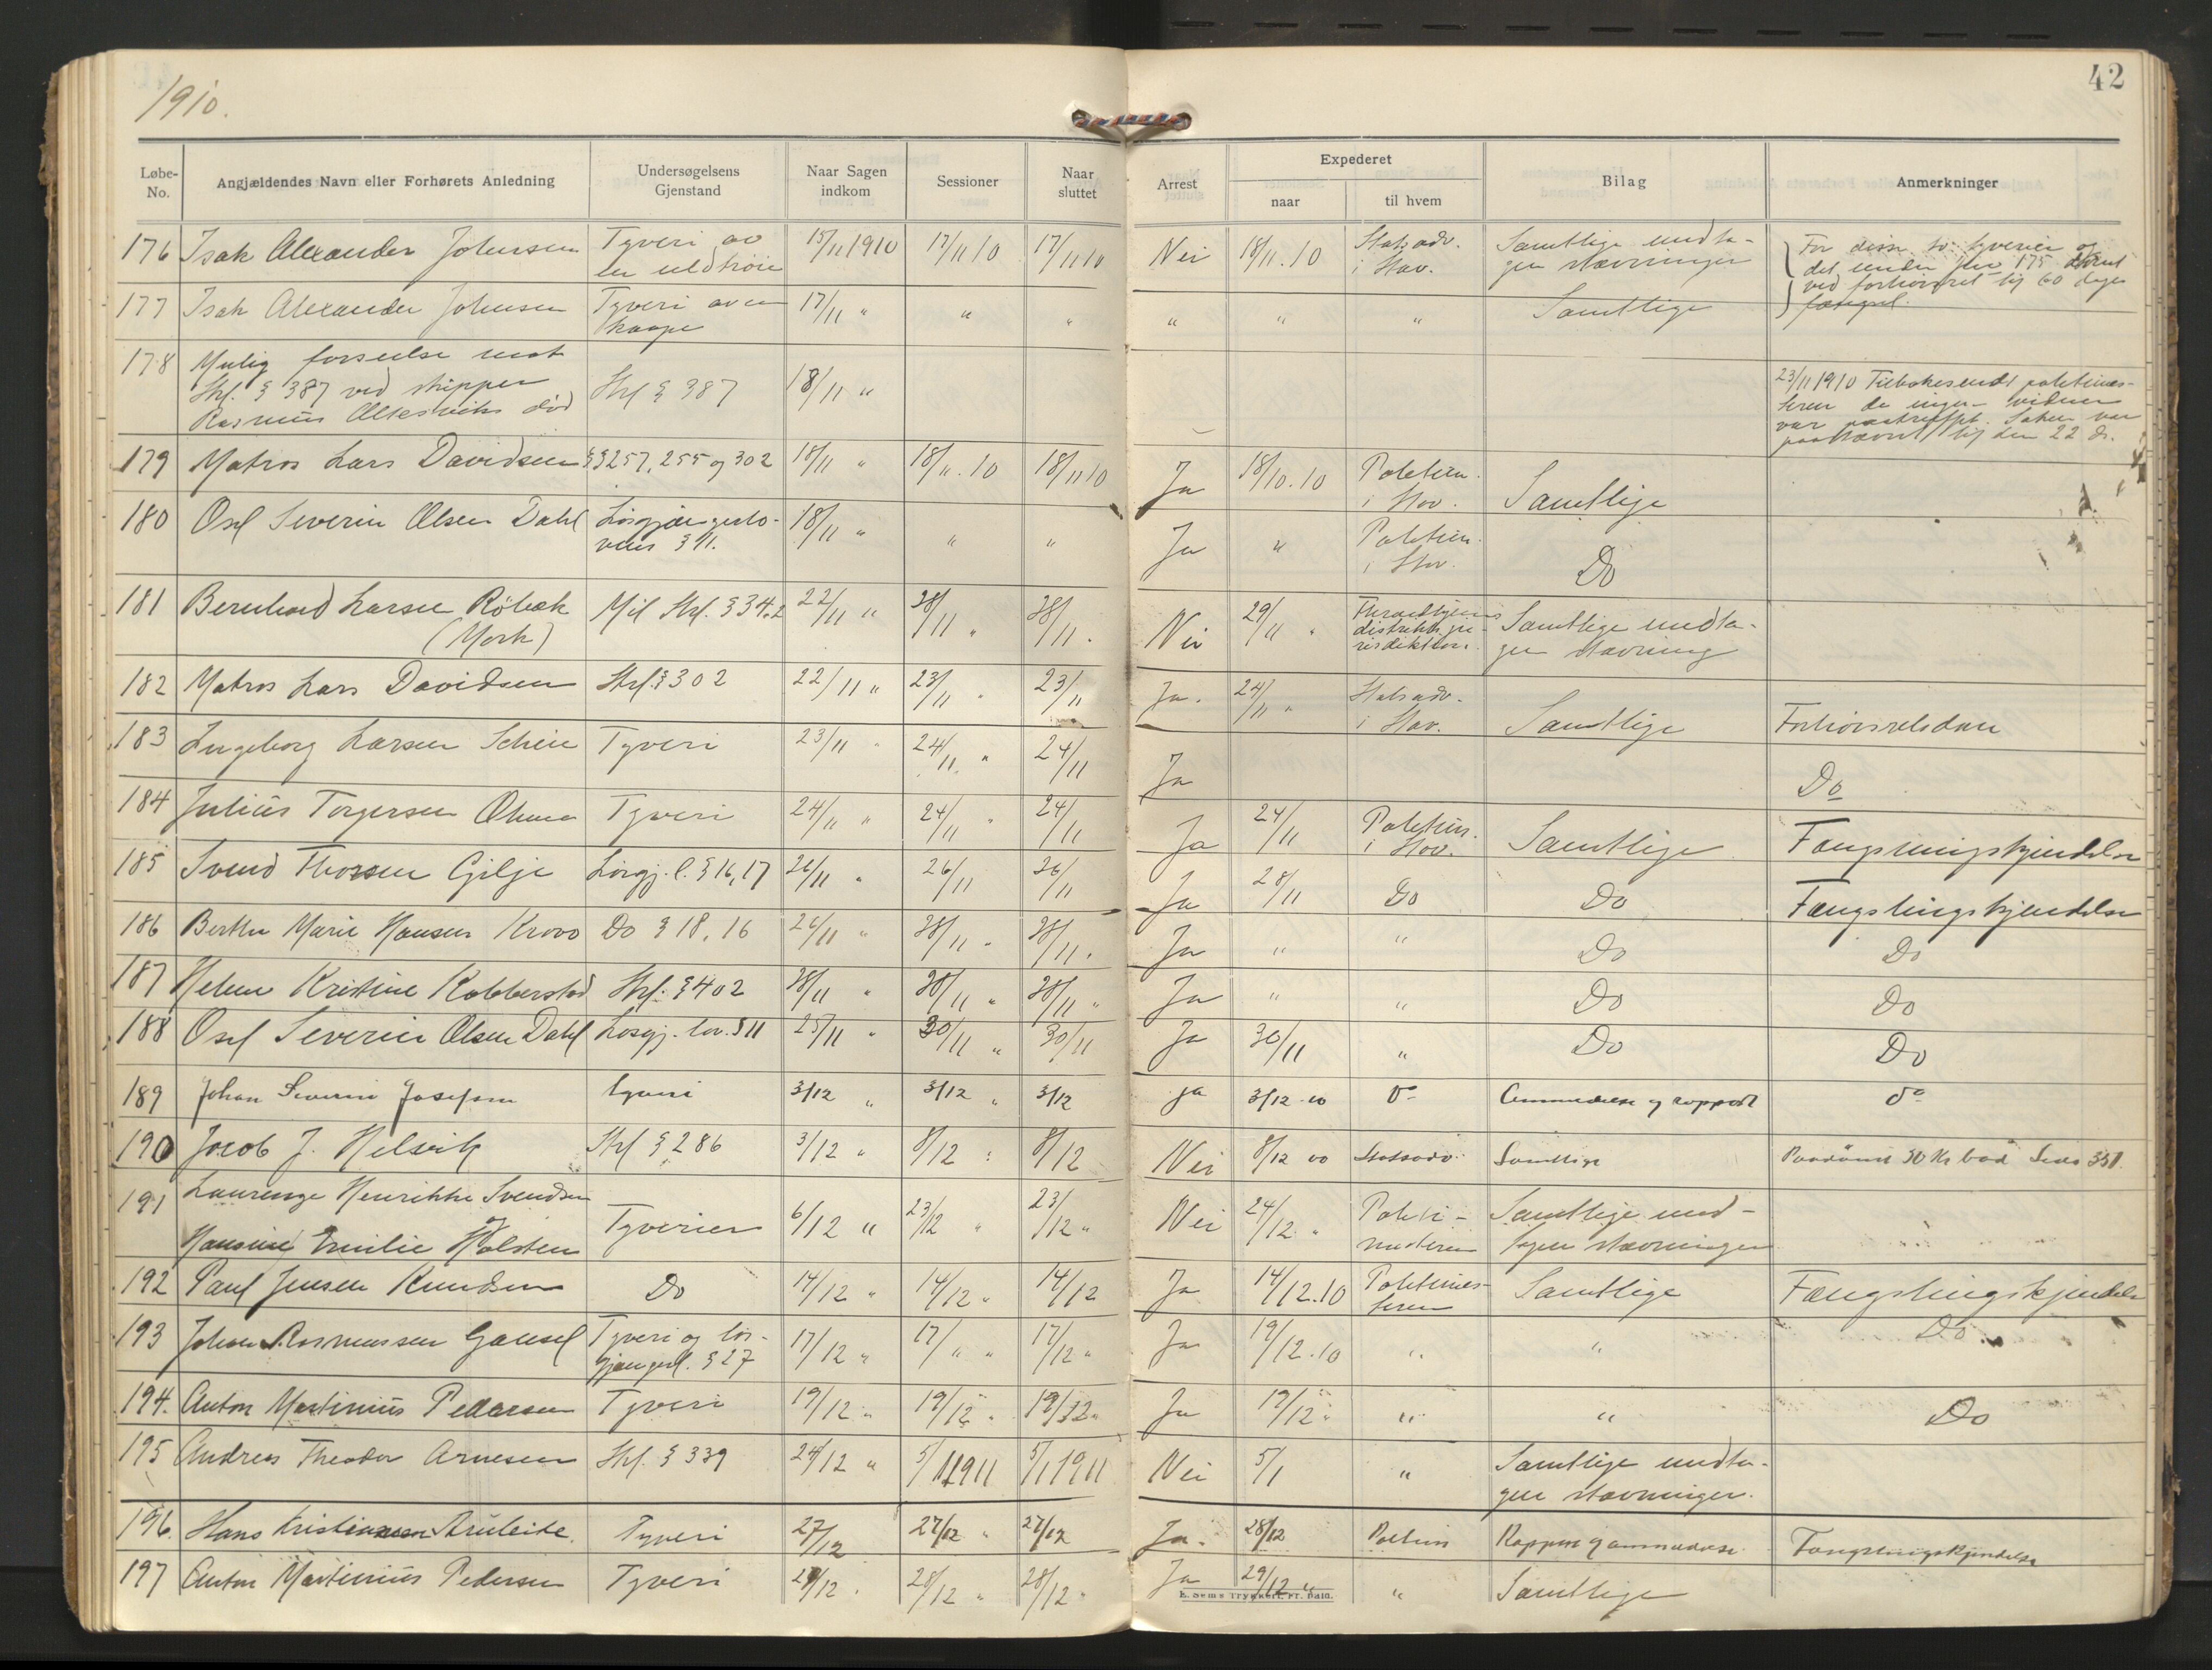 1910.
42
Løbe-No. Angjældendes Navn eller Forhørets Anledning Undersøgelsens Gjenstand Naar Sagen indkom Sessioner Naar sluttet Arrest Expederet naar til hvem Bilag Anmerkninger
176 Isak Alexander Johnsen Tyveri av en uldtrøie 15/11 1910 17/11 10 17/11 10 Nei 18/11.10 Statsadv. i Stav. Samtlige undta-gen stævninger For disse to tyverier og det under nr 175 dømt ved forhørsret til 60 dages fængsel.
177 Isak Alexander Johnsen Tyveri av en kaape 17/11 " " " " " " Samtlige
178 Mulig forseelse mot Strl. § 387 ved skipper Rasmus død Strl § 387 18/11 " 23/11 1910 Tilbakesendt politimes-teren da ingen vidner var paatruffet. Saken var paastævnt til den 22 ds.
179 Matros Lars Davidsen §§ 257, 255 og 302 18/11 " 18/11.10 18/11 10 Ja 18/10.10 Politim. i Stav. Samtlige
180 Osel Severin Olsen Dahl Løsgjængerlo-vens § 11. 18/11 " " " Ja " Politim. i Stav. Do
181 Bernhard Larsen Røbek (Mork) Mil Strl. § 34.2 22/11 " 28/11 " 28/11. Nei 29/11 " Throndhjems distrikts ju-risdiktion. Samtlige undta-gen stævning
182 Matros Lars Davidsen Strl. § 302 22/11 " 23/11 " 23/11 Ja. 24/11 " Statsadv. i Stav. Samtlige Forhørsretsdom
183 Ingeborg Larsen Scheie Tyveri 23/11 " 24/11 " 24/11 Ja Do
184 Julius Torgersen Tyveri 24/11 " 24/11 " 24/11 Ja 24/11 Politim. i Stav. Samtlige Fængslingskjendelse
185 Svend Thorsen Gilje Løsgj. l. § 16, 17 26/11 " 26/11 26/11 Ja 28/11 Do Do Fængslingskjendelse
186 Berthe Marie Hansen Do § 18, 16 26/11 " 28/11 " 28/11. Ja " " Do Do
187 Helene Kristine Kobberstad Strl. § 402 28/11 " 28/11 " 28/11 " Ja " " Do Do
188 Osel Severin Olsen Dahl Løsgj. lov. § 11 25/11 " 30/11 " 30/11 Ja 30/11 " Do Do
189 Johan Severin Josefsen tyveri 3/12 " 3/12 " 3/12 ja 3/12 10 do Anmeldelse og rapport do
190 Jacob J. Helvik Strl § 286 3/12 " 8/12 " 8/12 Nei 8/12 10 Statsadv. Samtlige 30 Kr bod
191 Laurenze Henrikke Svendsen og Hansine Emilie Holsten Tyverier 6/12 " 23/12 " 23/12 " Nei 24/12 " Politi-mesteren Samtlige und-tagen stævningen
192 Paul Jensen Knudsen Do 14/12 " 14/12 " 14/12 Ja 14/12.10 Politimes-teren Samtlige Fængslingskjendelse
193 Johan Rasmussen Gausel Tyveri og løs-gjængerl. § 27 17/12 " 17/" " 17/12 " Ja 19/12.10 " " Do
194. Anton Martinius Pedersen Tyveri 19/12 " 19/12 " 19/12 " Ja 19/12 " " " Do
195 Andreas Theodor Arnesen Strl. § 339 24/12 " 5/1 1911 5/1 1911 Nei 5/1 " Samtlige undta-gen stævninger.
196. Hans Kristiansen Tyveri 27/12 27/12 " 27/12 Ja. 28/12 Politim Rapport og anmeldelse Fængslingskjendelse
197 Anton Martinius Pedersen Tyveri 28/12 " 28/12 " 28/12 " Ja 29/12 " " Samtlige